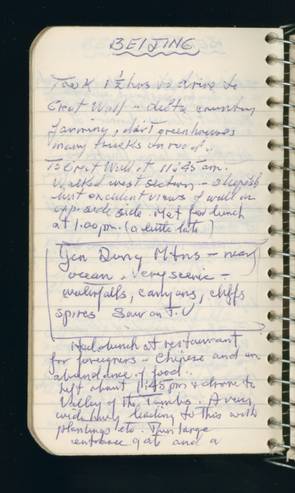 BEIJING
Took 1½ hrs to drive to
Great Wall - lots country
farming, dirt greenhouses
many trucks on road.
To Great Wall at 11:45 am.
Walked west section - steepish
but excellent views of wall on
opp side side. Met for lunch
at 1.00 pm. (a little late)
Yen Dang Mtns - near
ocean - very scenic -
waterfalls, canyons, cliffs
spires Saw on T.V
Had lunch at restaurant
for foreigners - Chinese and an
abundance of food.
Left about 1:45 pm & drove to
Valley of the Tombs. A very
wide hwy leading to this with
plantings etc. Thru large
entrance gate and a